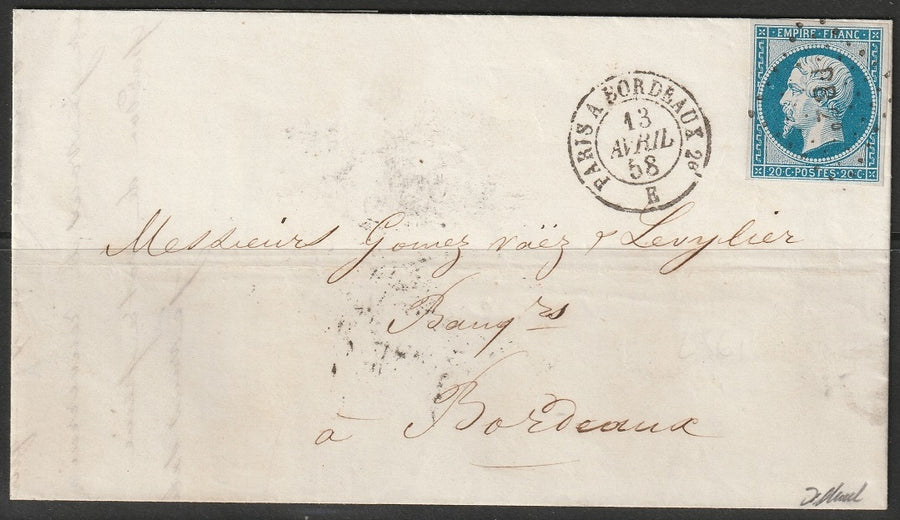 EMPIRE·FRANC
20·C·POSTES·20·C
PARIS A BORDEAUX 2º
13
AVRIL
58
E
Messieurs Gomez váëz & Levylier
Banqrs
à Bordeaux